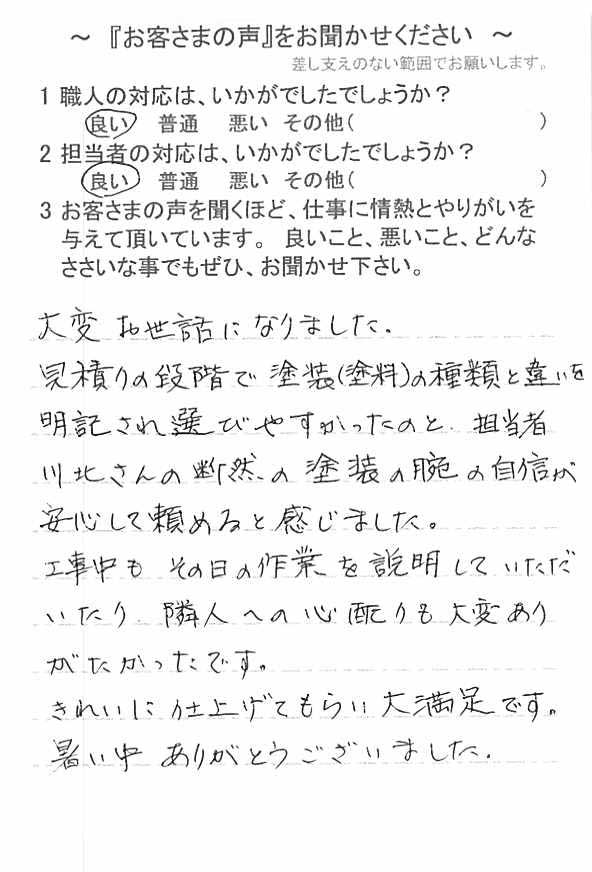 ～ 『お客さまの声』をお聞かせください ～
差し支えのない範囲でお願いします。
1 職人の対応は、いかがでしたでしょうか？
良い 普通 悪い その他( )
2 担当者の対応は、いかがでしたでしょうか？
良い 普通 悪い その他( )
3 お客さまの声を聞くほど、仕事に情熱とやりがいを
与えて頂いています。 良いこと、悪いこと、どんな
ささいな事でもぜひ、お聞かせ下さい。
大変 お世話になりました.
見積りの段階で 塗装(塗料)の種類と違いを
明記され選びやすかったのと. 担当者
川北さんの断然の 塗装の腕の自信が
安心して頼めると感じました。
工事中も その日の作業を説明していただ
いたり. 隣人への心配りも 大変あり
がたかったです。
きれいに仕上げてもらい 大満足です。
暑い中 ありがとうございました.